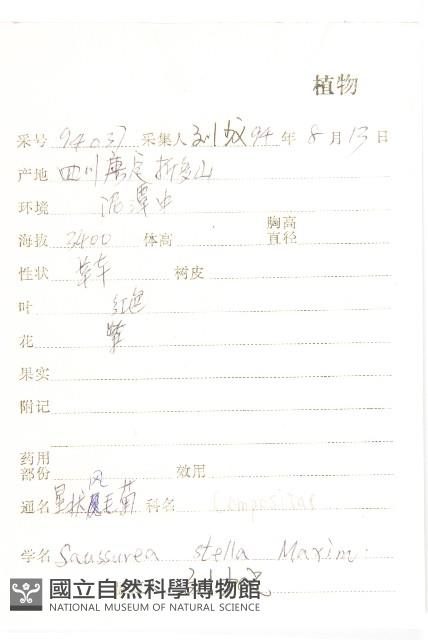 植物
采号 94037 采集人 刘 94 年 8 月 13 日
产地 四川康定折多山
环境 泥潭中
海拔 3400 体高 胸高直径
性状 草本 树皮
叶 红色
花 紫
果实
附记
药用部份 效用
通名 星状风毛菊 科名 Compositae
学名 Saussurea stella Maxim.
國立自然科學博物館
NATIONAL MUSEUM OF NATURAL SCIENCE